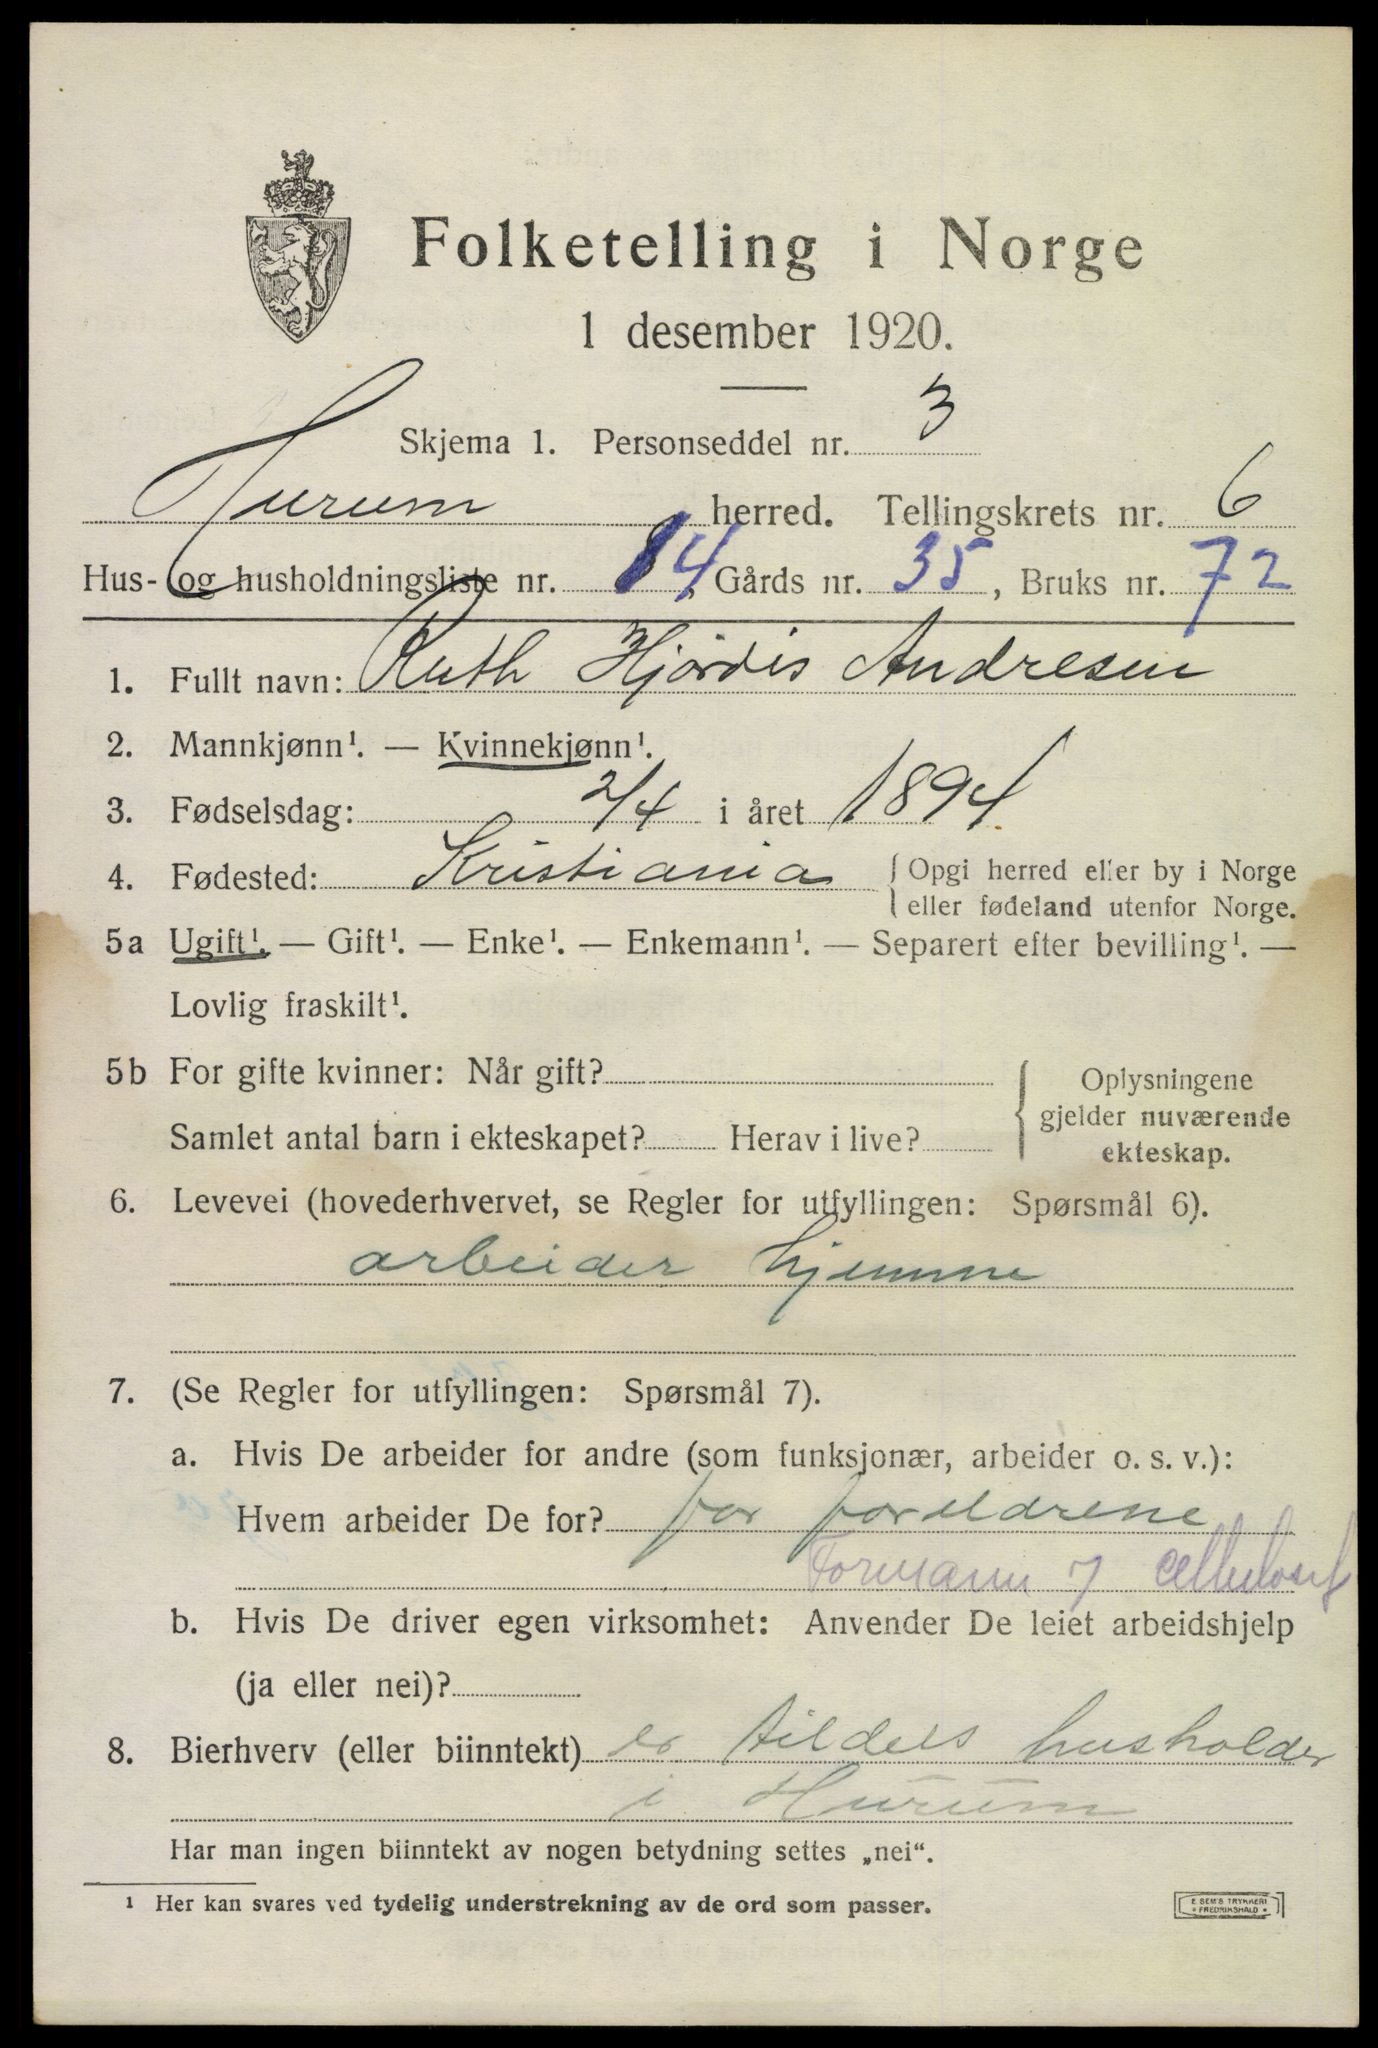 Folketelling i Norge
1 desember 1920.
Skjema 1. Personseddel nr. 3
Hurum herred. Tellingskrets nr. 6
Hus- og husholdningsliste nr. 84, Gårds nr. 35, Bruks nr. 72
1. Fullt navn: Ruth Hjørdis Andresen
2. Mannkjønn¹. — Kvinnekjønn¹.
3. Fødselsdag: 2/4 i året 1894
4. Fødested: Kristiania { Opgi herred eller by i Norge
eller fødeland utenfor Norge.
5a Ugift¹. — Gift¹. — Enke¹. — Enkemann¹. — Separert efter bevilling¹. —
Lovlig fraskilt¹.
5b For gifte kvinner: Når gift?
Samlet antal barn i ekteskapet? Herav i live?
Oplysningene
gjelder nuværende
ekteskap.
6. Levevei (hovederhvervet, se Regler for utfyllingen: Spørsmål 6).
arbeider hjemme
7. (Se Regler for utfyllingen: Spørsmål 7).
a. Hvis De arbeider for andre (som funksjonær, arbeider o. s. v.):
Hvem arbeider De for? for foreldrene
Formann
b. Hvis De driver egen virksomhet: Anvender De leiet arbeidshjelp
(ja eller nei)?
8. Bierhverv (eller biinntekt) er tildels husholder
i Hurum
Har man ingen biinntekt av nogen betydning settes „nei“.
¹ Her kan svares ved tydelig understrekning av de ord som passer.
E. SEM'S TRYKKERI
* FREDRIKSHALD *